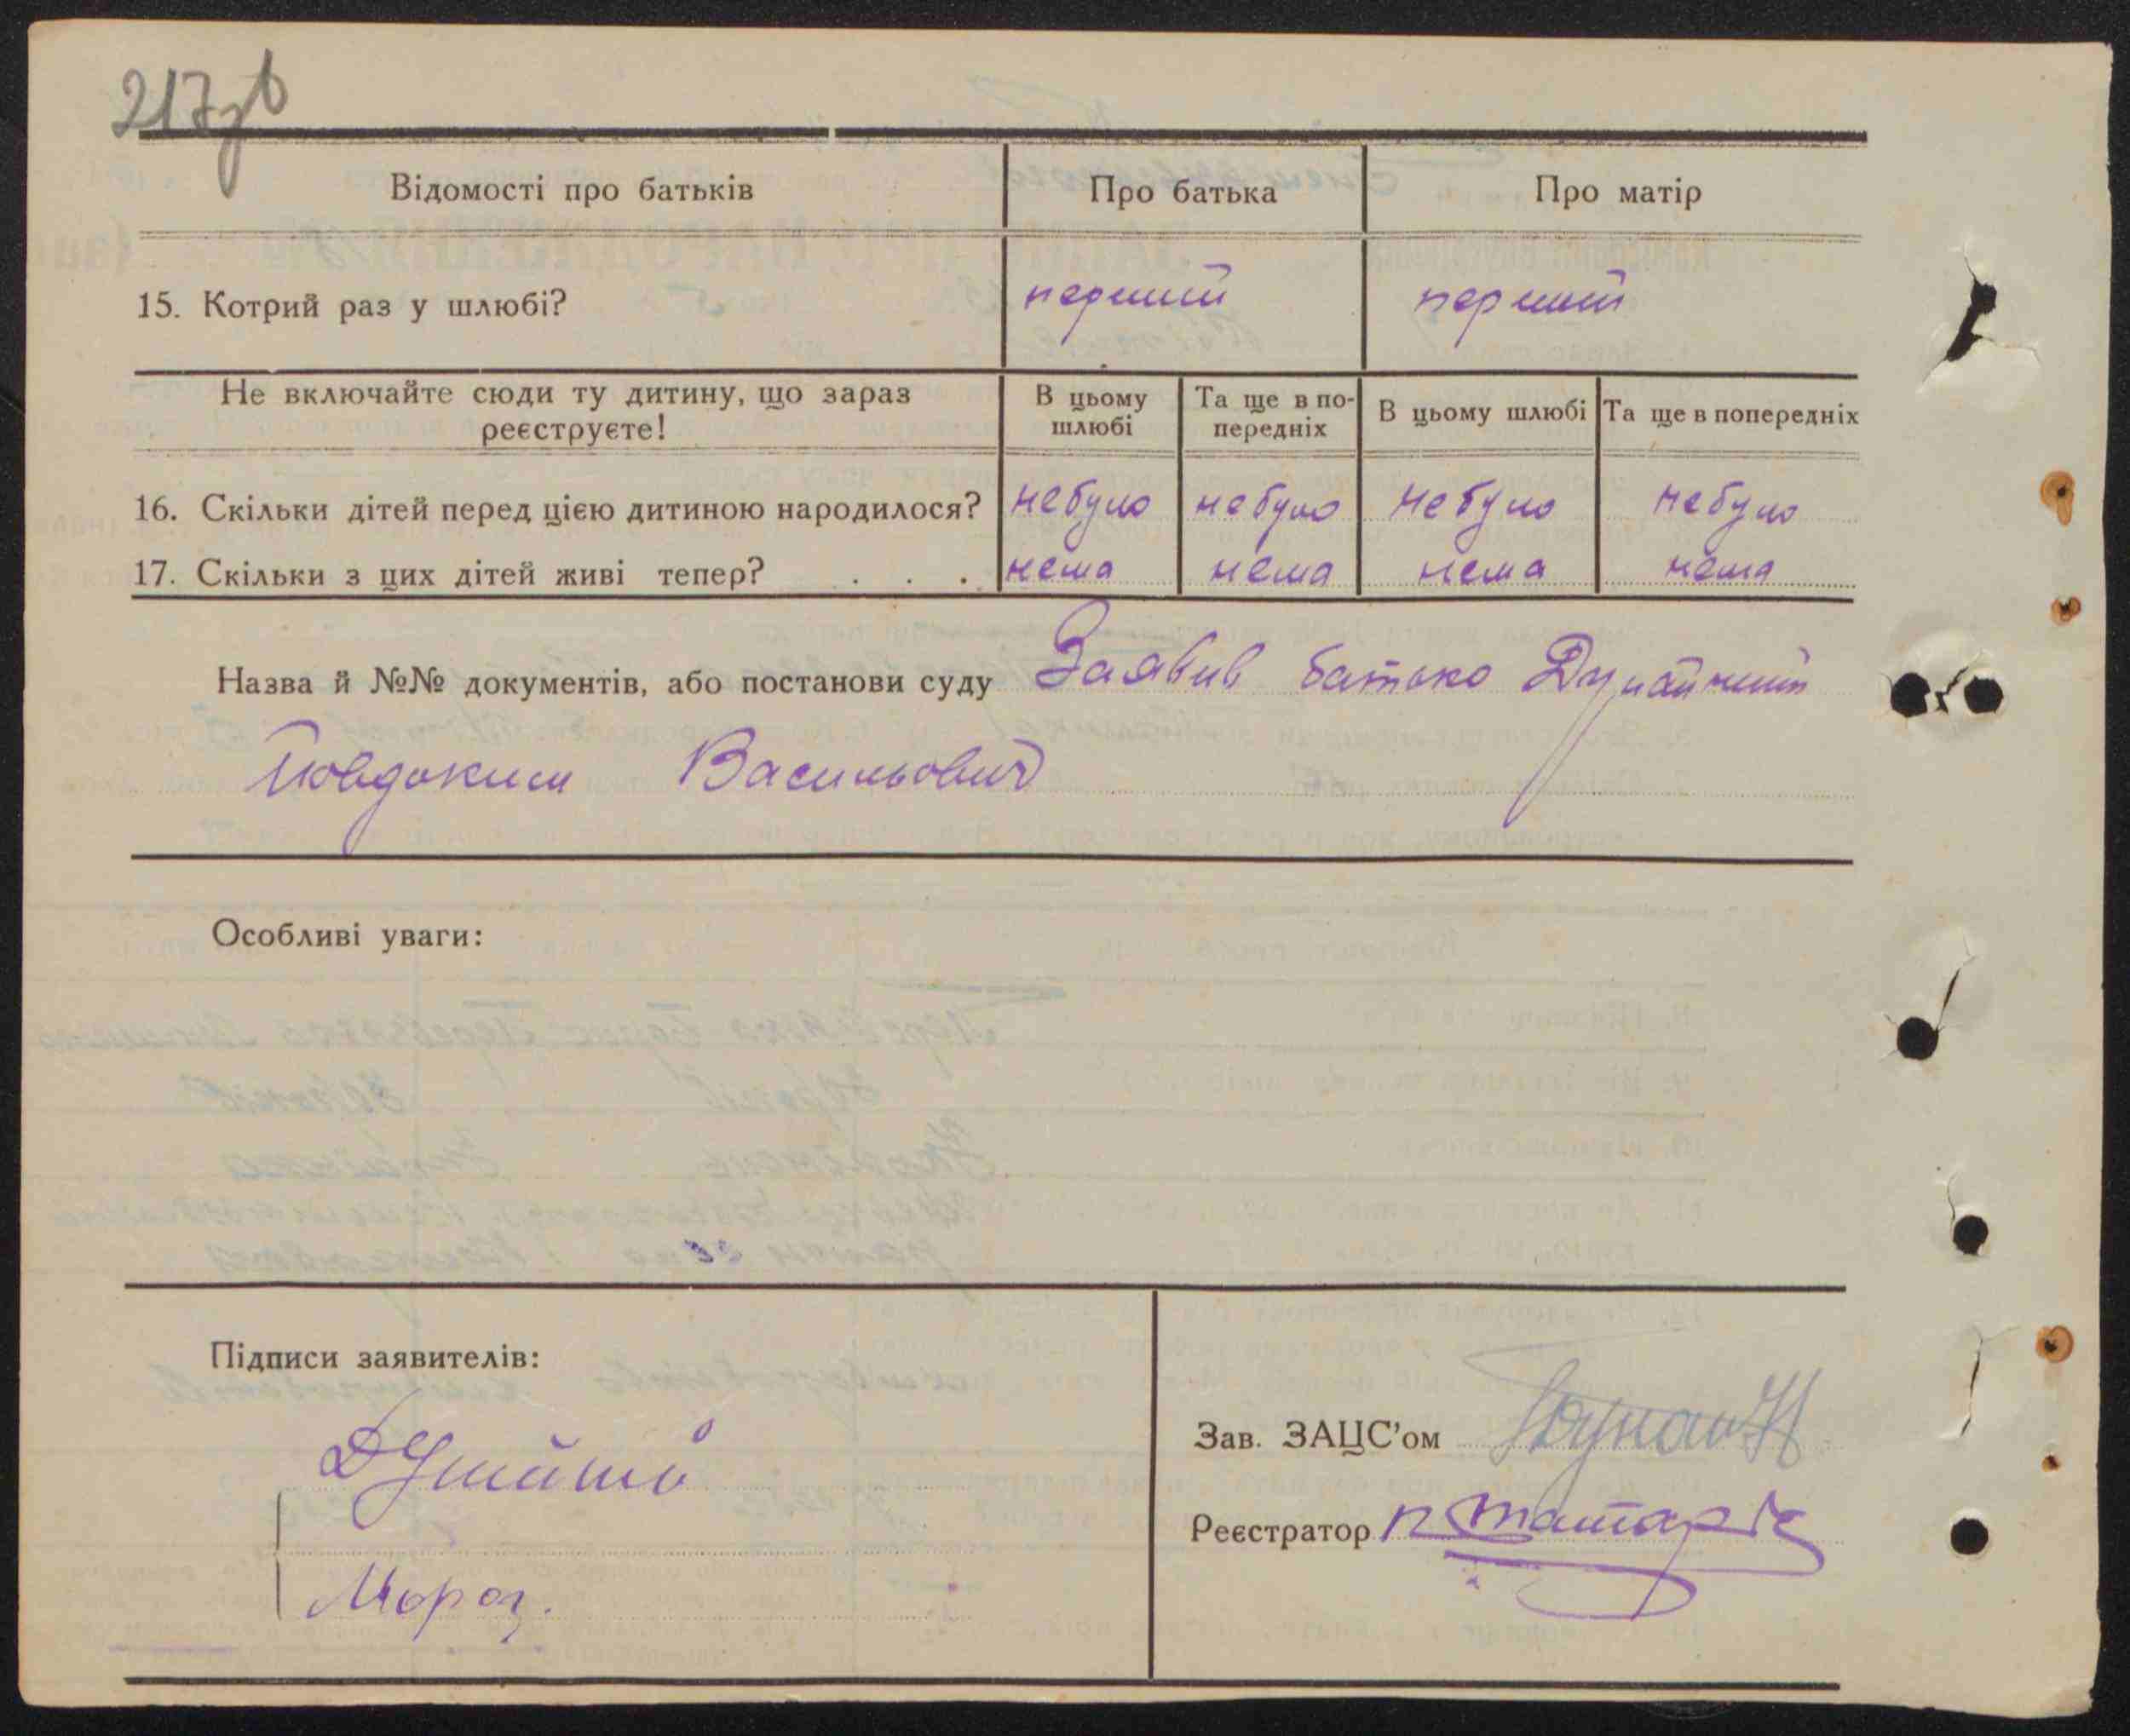 217зв
Відомості про батьків Про батька Про матір
15. Котрий раз у шлюбі? перший перший
Не включайте сюди ту дитину, що зараз реєструєте!
В цьому шлюбі Та ще в по-передніх В цьому шлюбі Та ще в попередніх
16. Скільки дітей перед цією дитиною народилося? небуло небуло небуло небуло
17. Скільки з цих дітей живі тепер? . . . нема нема нема нема
Назва й №№ документів, або постанови суду Заявив батько
Повдоким Васильович
Особливі уваги:
Підписи заявителів:
Мороз.
Зав. ЗАЦС'ом
Реєстратор